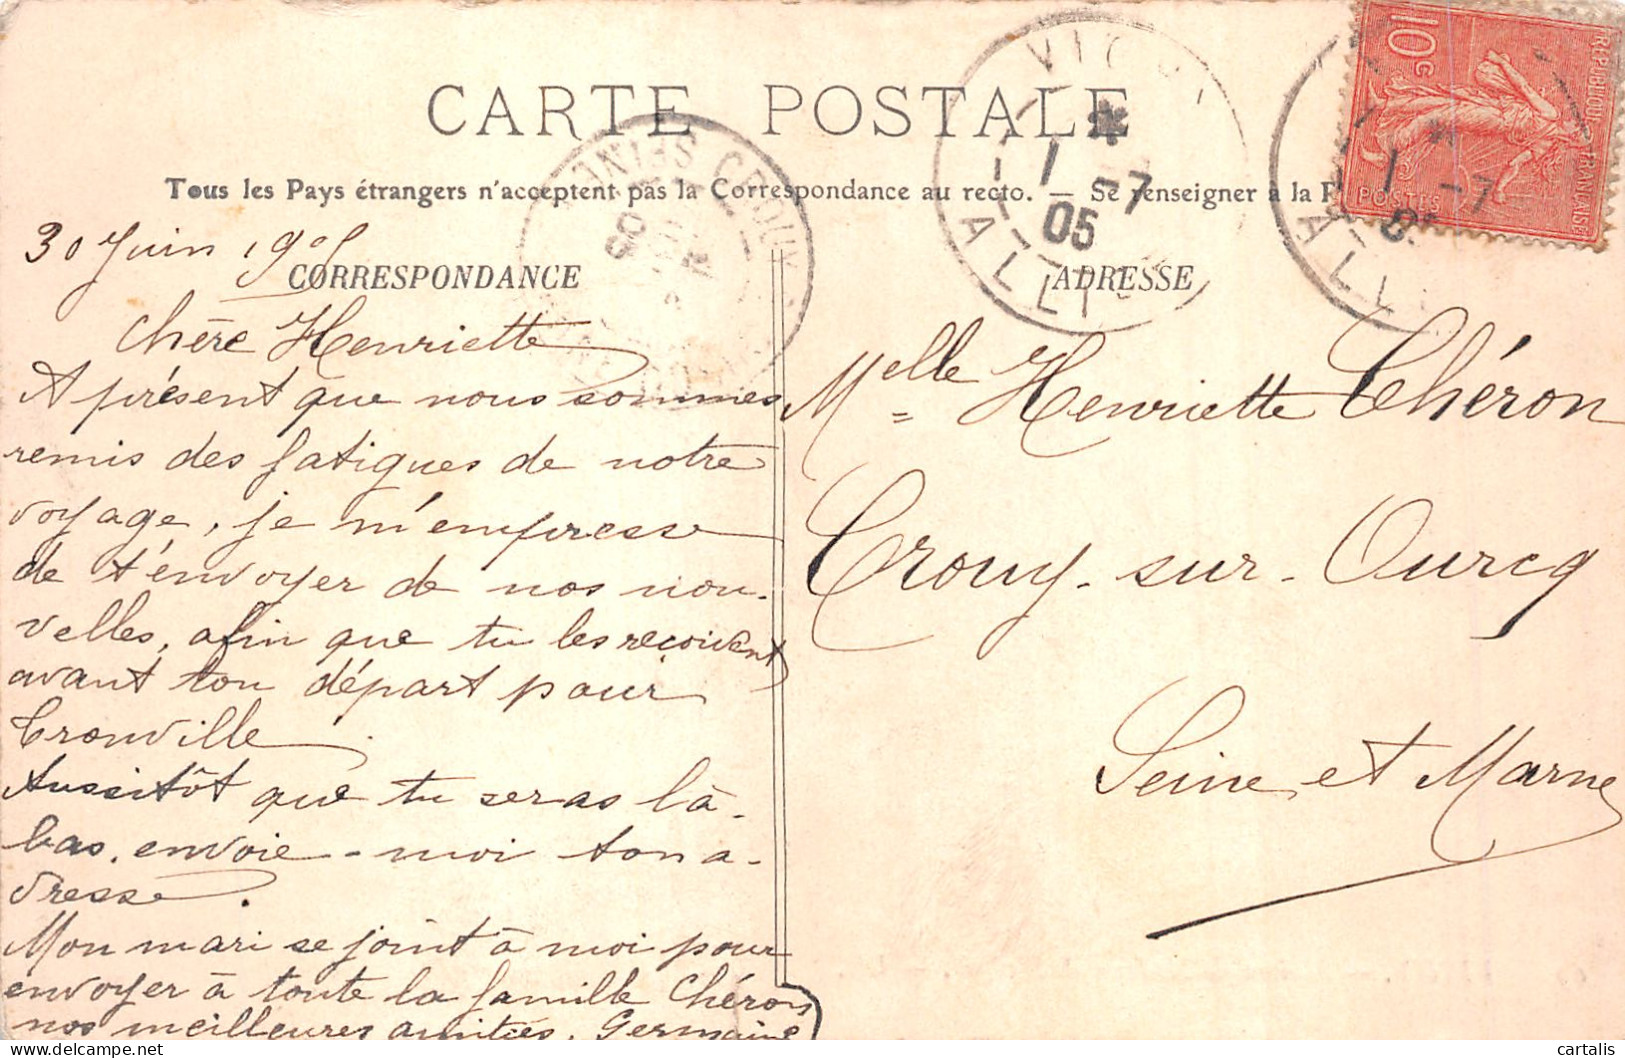 CARTE POSTALE
Tous les Pays étrangers n'acceptent pas la Correspondance au recto. — Se renseigner à la P
10c
REPUBLIQUE FRANÇAISE
POSTES
VIC
1 -7
05
ALLI
1 -7
ALL
CROUY
05
30 Juin 1905
CORRESPONDANCE
Chère Henriette
A présent que nous sommes
remis des fatigues de notre
voyage, je m'empresse
de t'envoyer de nos nou-
velles, afin que tu les reçoivent
avant ton départ pour
Trouville
Aussitôt que tu seras là-
bas, envoie-moi ton a-
dresse.
Mon mari se joint à moi pour
envoyer à toute la famille Chéron
nos meilleures amitiés. Germaine
ADRESSE
Melle Henriette Chéron
Crouy-sur-Ourcq
Seine et Marne
cartalis